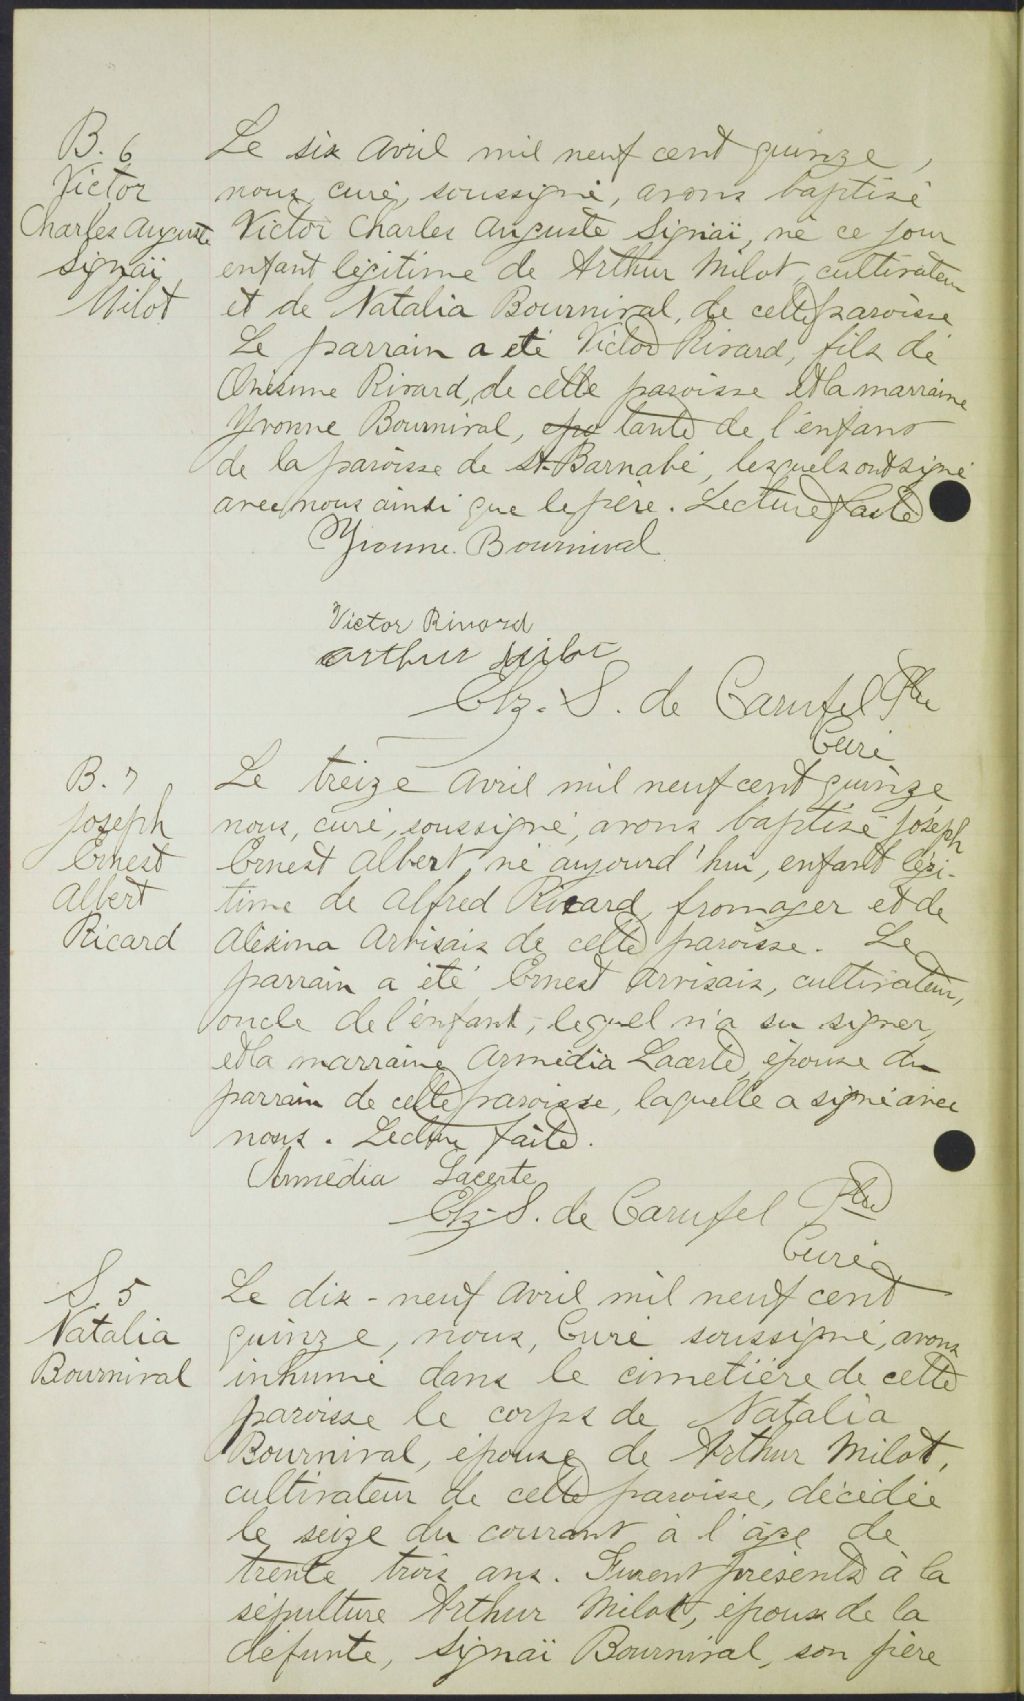 B. 6
Victor
Charles Auguste
Signaï
Milot
Le six avril mil neuf cent quinze,
nous, curé, soussigné, avons baptisé
Victor Charles Auguste Signaï, né ce jour
enfant légitime de Arthur Milot, cultivateur
et de Natalia Bournival, de cette paroisse
Le parrain a été Victor Rivard, fils de
Onésime Rivard, de cette paroisse et la marraine
Yvonne Bournival, tante de l'enfant
de la paroisse de St-Barnabé, lesquels ont signé
avec nous ainsi que le père. Lecture faite
Yvonne Bournival
Victor Rivard
Arthur Milot
Elz. S. de Carufel Ptre
Curé
B. 7
Joseph
Ernest
Albert
Ricard
Le treize avril mil neuf cent quinze
nous, curé, soussigné, avons baptisé Joseph
Ernest Albert, né aujourd'hui, enfant légi-
time de Alfred Ricard, fromager et de
Alexina Arvisais de cette paroisse. Le
parrain a été Ernest Arvisais, cultivateur,
oncle de l'enfant, lequel n'a su signer,
et la marraine Armédia Lacerte, épouse du
parrain de cette paroisse, laquelle a signé avec
nous. Lecture faite.
Armédia Lacerte
Elz. S. de Carufel Ptre
Curé
S. 5
Natalia
Bournival
Le dix-neuf avril mil neuf cent
quinze, nous, Curé soussigné, avons
inhumé dans le cimetière de cette
paroisse le corps de Natalia
Bournival, épouse de Arthur Milot,
cultivateur de cette paroisse, décédée
le seize du courant à l'âge de
trente trois ans. Furent présents à la
sépulture Arthur Milot, époux de la
défunte, Signaï Bournival, son père